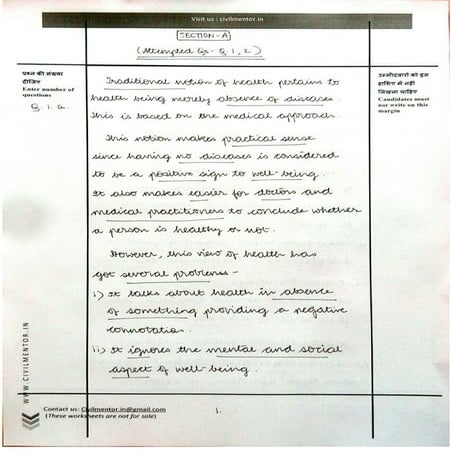 Visit us : civilmentor.in
SECTION-A
(Attempted Qs - Q.1, 2)
प्रश्न की संख्या
दीजिए
Enter number of
questions
Q.1.a.
उम्मीदवारों को इस
हाशिए में नहीं
लिखना चाहिए
Candidates must
not write on this
margin
Traditional notion of health pertains to
health being merely absence of diseases.
This is based on the medical approach.
This notion makes practical sense
since having no diseases is considered
to be a positive sign to well-being.
It also makes easier for doctors and
medical practitioners to conclude whether
a person is healthy or not.
However, this view of health has
got several problems -
i) It talks about health in absence
of something providing a negative
connotation.
ii) It ignores the mental and social
aspect of well-being.
WWW.CIVILMENTOR.IN
Contact us: Civilmentor.in@gmail.com
(These worksheets are not for sale)
1.